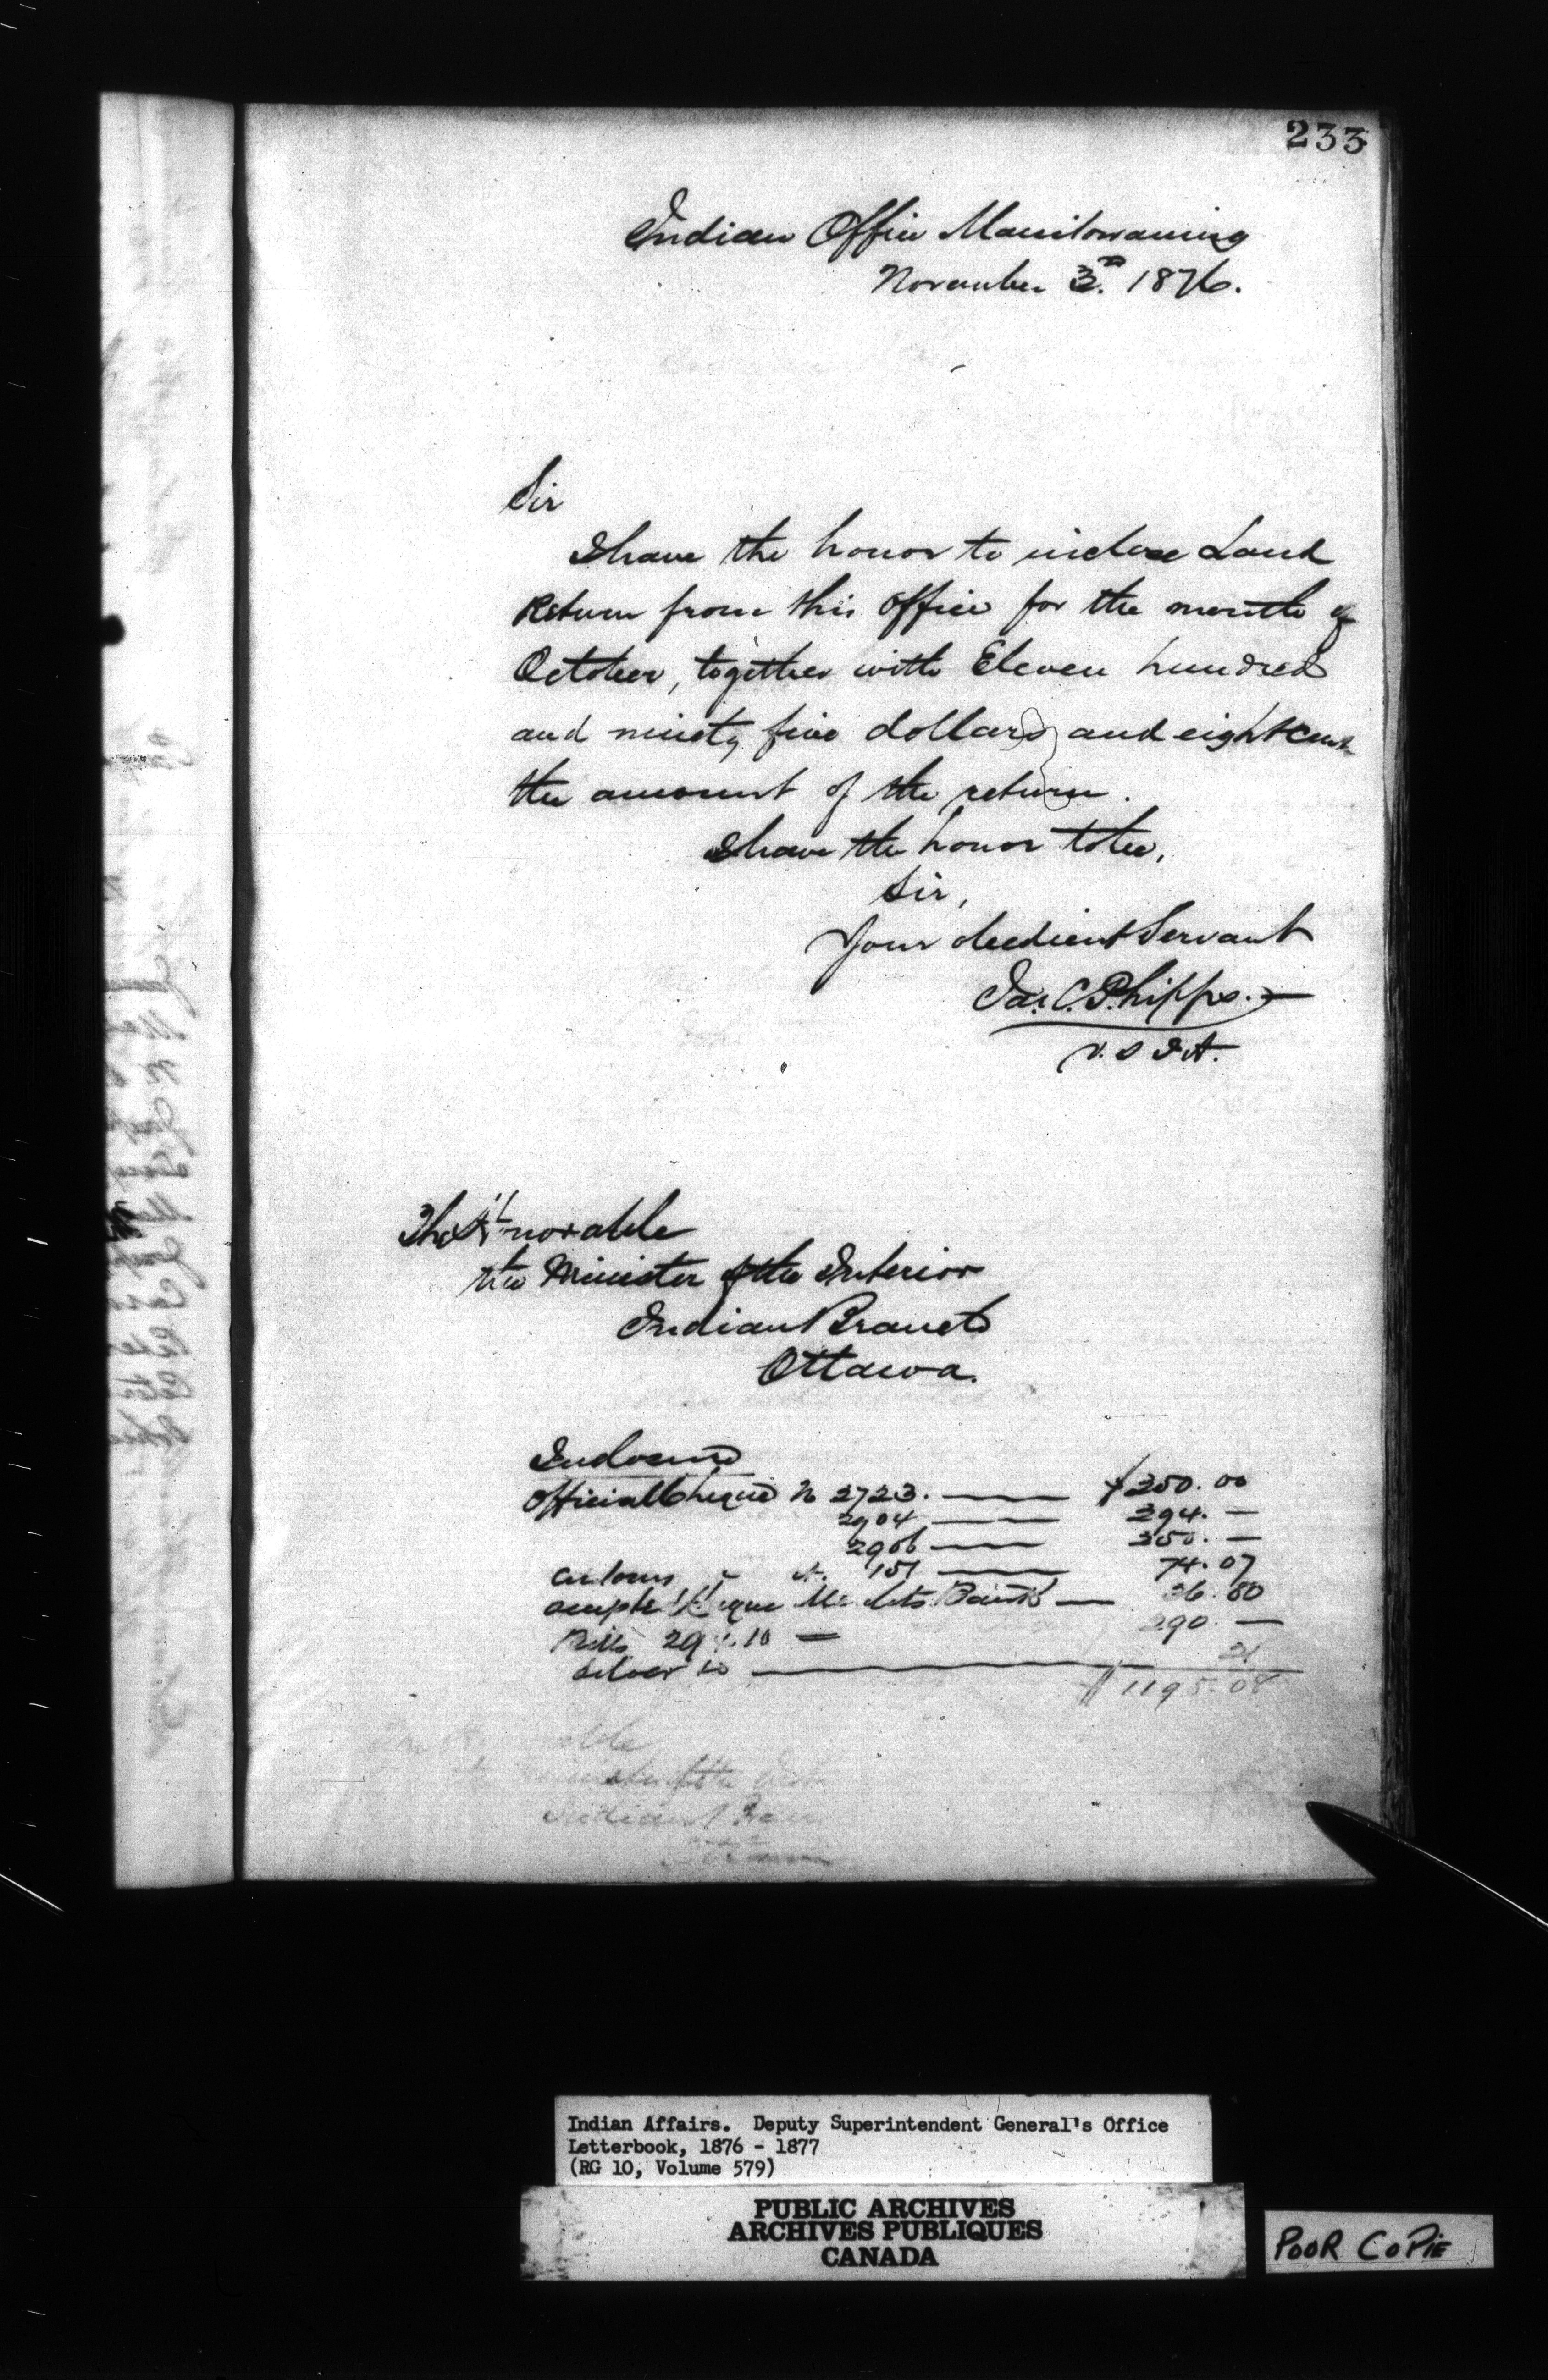 233
Indian Office Manitowaning
November 3rd. 1876.
Sir
I have the honor to inclose Land
Return from this office for the month of
October, together with Eleven hundred
and ninety five dollars and eight cents
the amount of the return.
I have the honor to be,
Sir,
Your obedient Servant
Jas. C. Phipps.
V. S I A.
The Honorable
the Minister of the Interior
Indian Branch
Ottawa.
Inclosed
Official Cheque No 2723. $250.00
2904 294.—
2906 250.—
157 74.07
Cheque Bank 36.80
Bills 29 10 290.—
Silver 21
$1195.08
Indian Affairs. Deputy Superintendent General's Office
Letterbook, 1876 - 1877
(RG 10, Volume 579)
PUBLIC ARCHIVES
ARCHIVES PUBLIQUES
CANADA
POOR COPIE